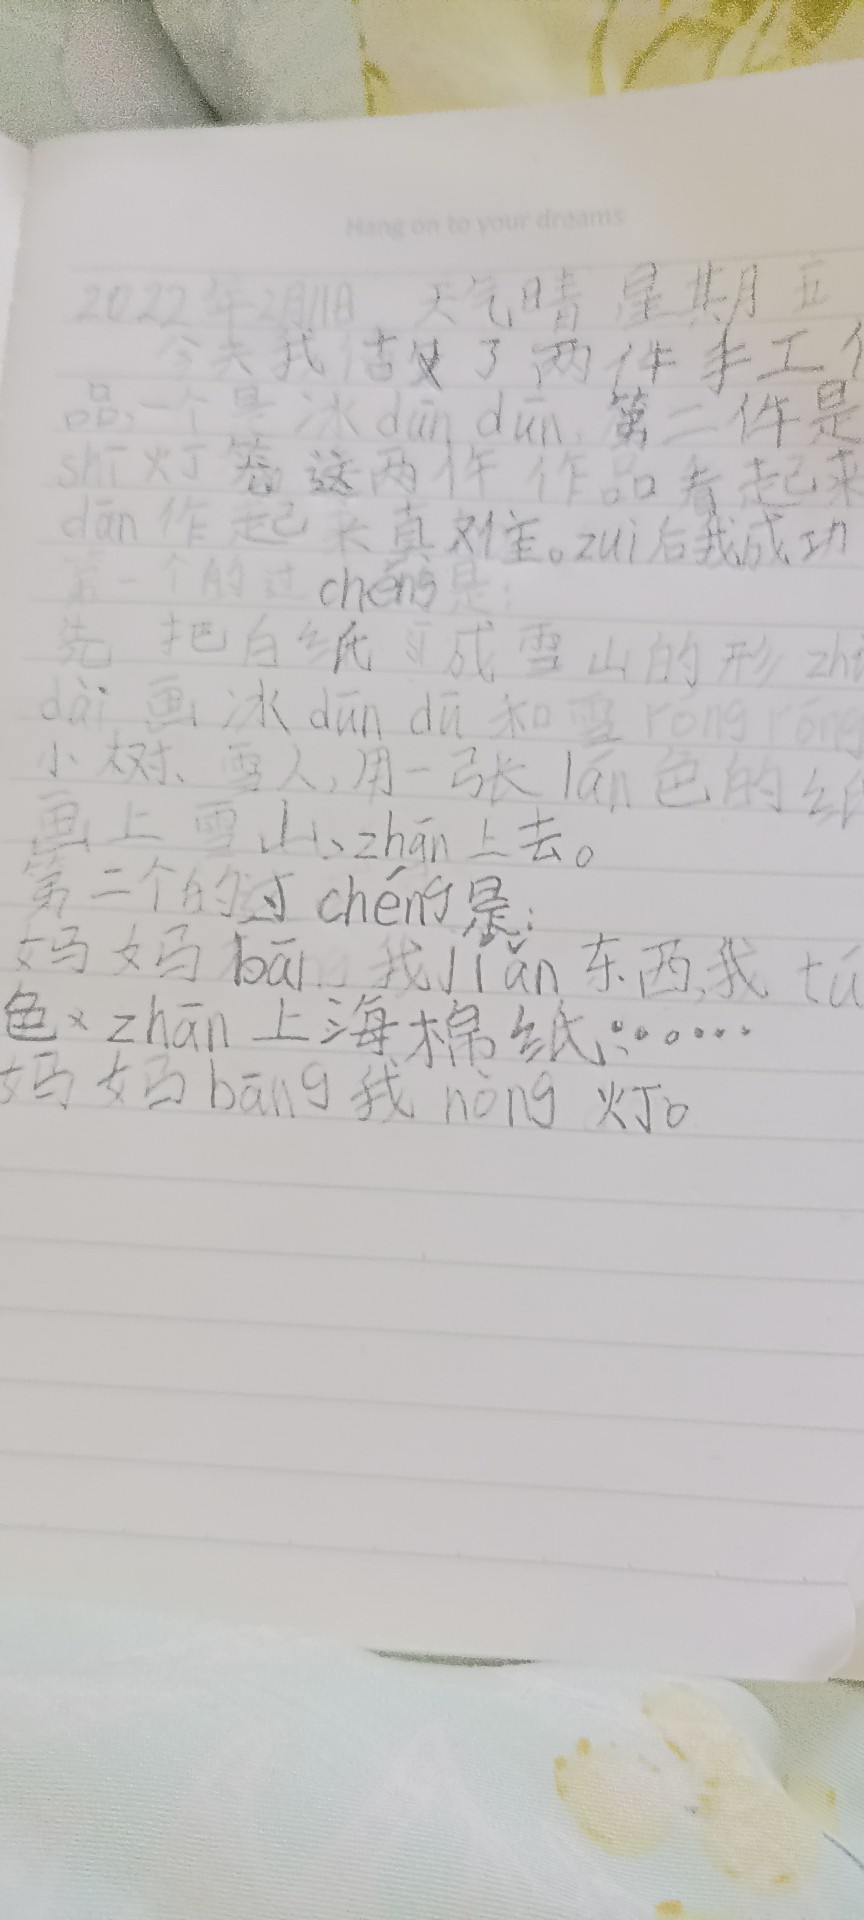 Hang on to your dreams
2022年2月11日 天气晴 星期五
今天我估了两件手工作
品,一个是冰dūn dūn,第二件是
shī灯笼这两件作品看起来
dān作起来真难。zuì后我成功
第一个的过chéng是:
先把白纸成雪山的形zhu
dài画冰dūn dū和雪róng róng
小树、雪人,用一张lán色的纸
画上雪山、zhān上去。
第二个的过chéng是:
妈妈bāng我jiǎn东西,我tú
色、zhān上海棉纸……
妈妈bāng我nòng灯。